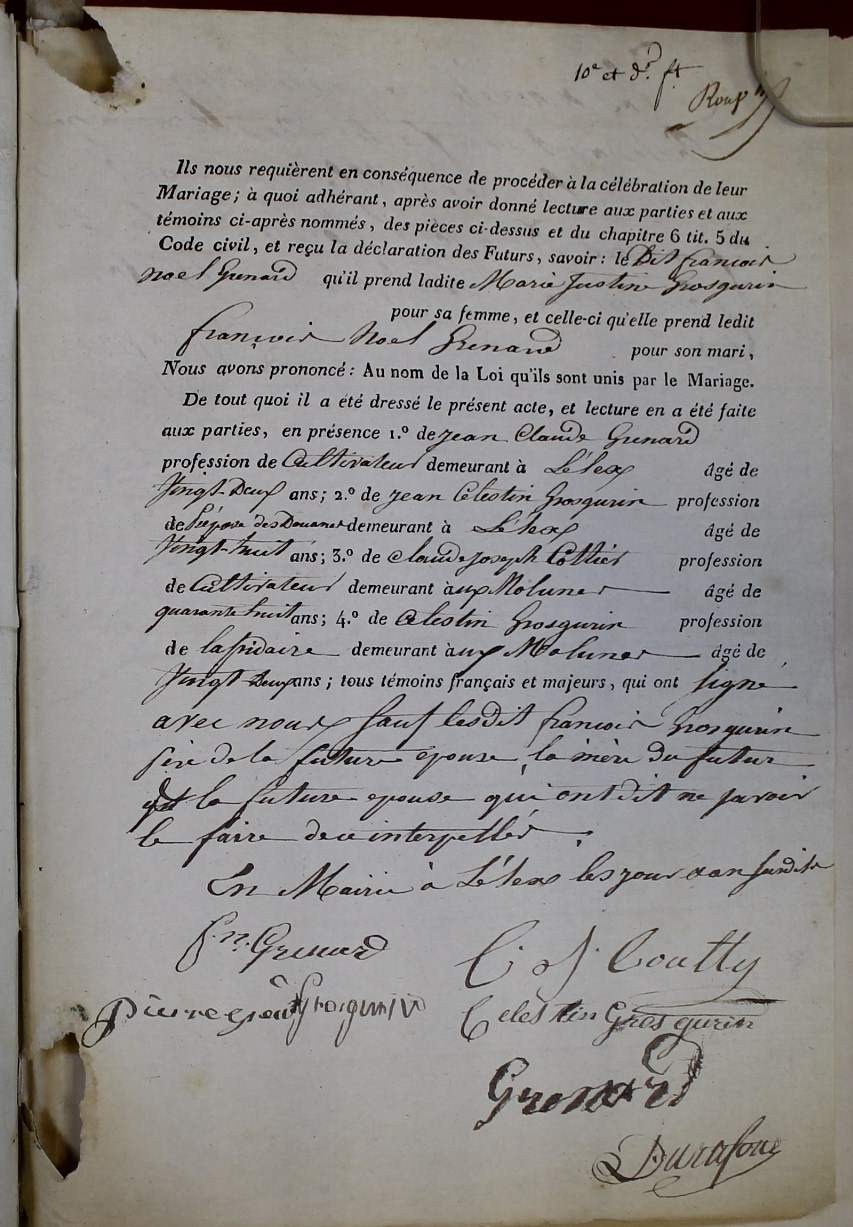 10e et dr. ft
Ils nous requièrent en conséquence de procéder à la célébration de leur
Mariage; à quoi adhérant, après avoir donné lecture aux parties et aux
témoins ci-après nommés, des pièces ci-dessus et du chapitre 6 tit. 5 du
Code civil, et reçu la déclaration des Futurs, savoir: le dit françois
Noel Grenard qu'il prend ladite Marie Justine Grosgurin
pour sa femme, et celle-ci qu'elle prend ledit
françois Noel Grenard pour son mari,
Nous avons prononcé: Au nom de la Loi qu'ils sont unis par le Mariage.
De tout quoi il a été dressé le présent acte, et lecture en a été faite
aux parties, en présence 1.º de Jean Claude Grenard
profession de Cultivateur demeurant à Lélex âgé de
Vingt-Deux ans; 2.º de Jean Célestin Grosgurin profession
de Préposé des Douanes demeurant à Lélex âgé de
Vingt-huit ans; 3.º de Claude Joseph Cottier profession
de Cultivateur demeurant aux Molunes âgé de
quarante huit ans; 4.º de Célestin Grosgurin profession
de lapidaire demeurant aux Molunes âgé de
Vingt Deux ans; tous témoins français et majeurs, qui ont signé
avec nous sauf lesdit françois Grosgurin
père de la future épouse, la mère du futur
la future epouse qui ont dit ne savoir
le faire de ce interpellés.
En Mairie à Lélex les jour et an susdits
f. n. Grenard
C. J. Coutty
pierre Grosgurin
Celestin Grosgurin
Grenard
Durafour